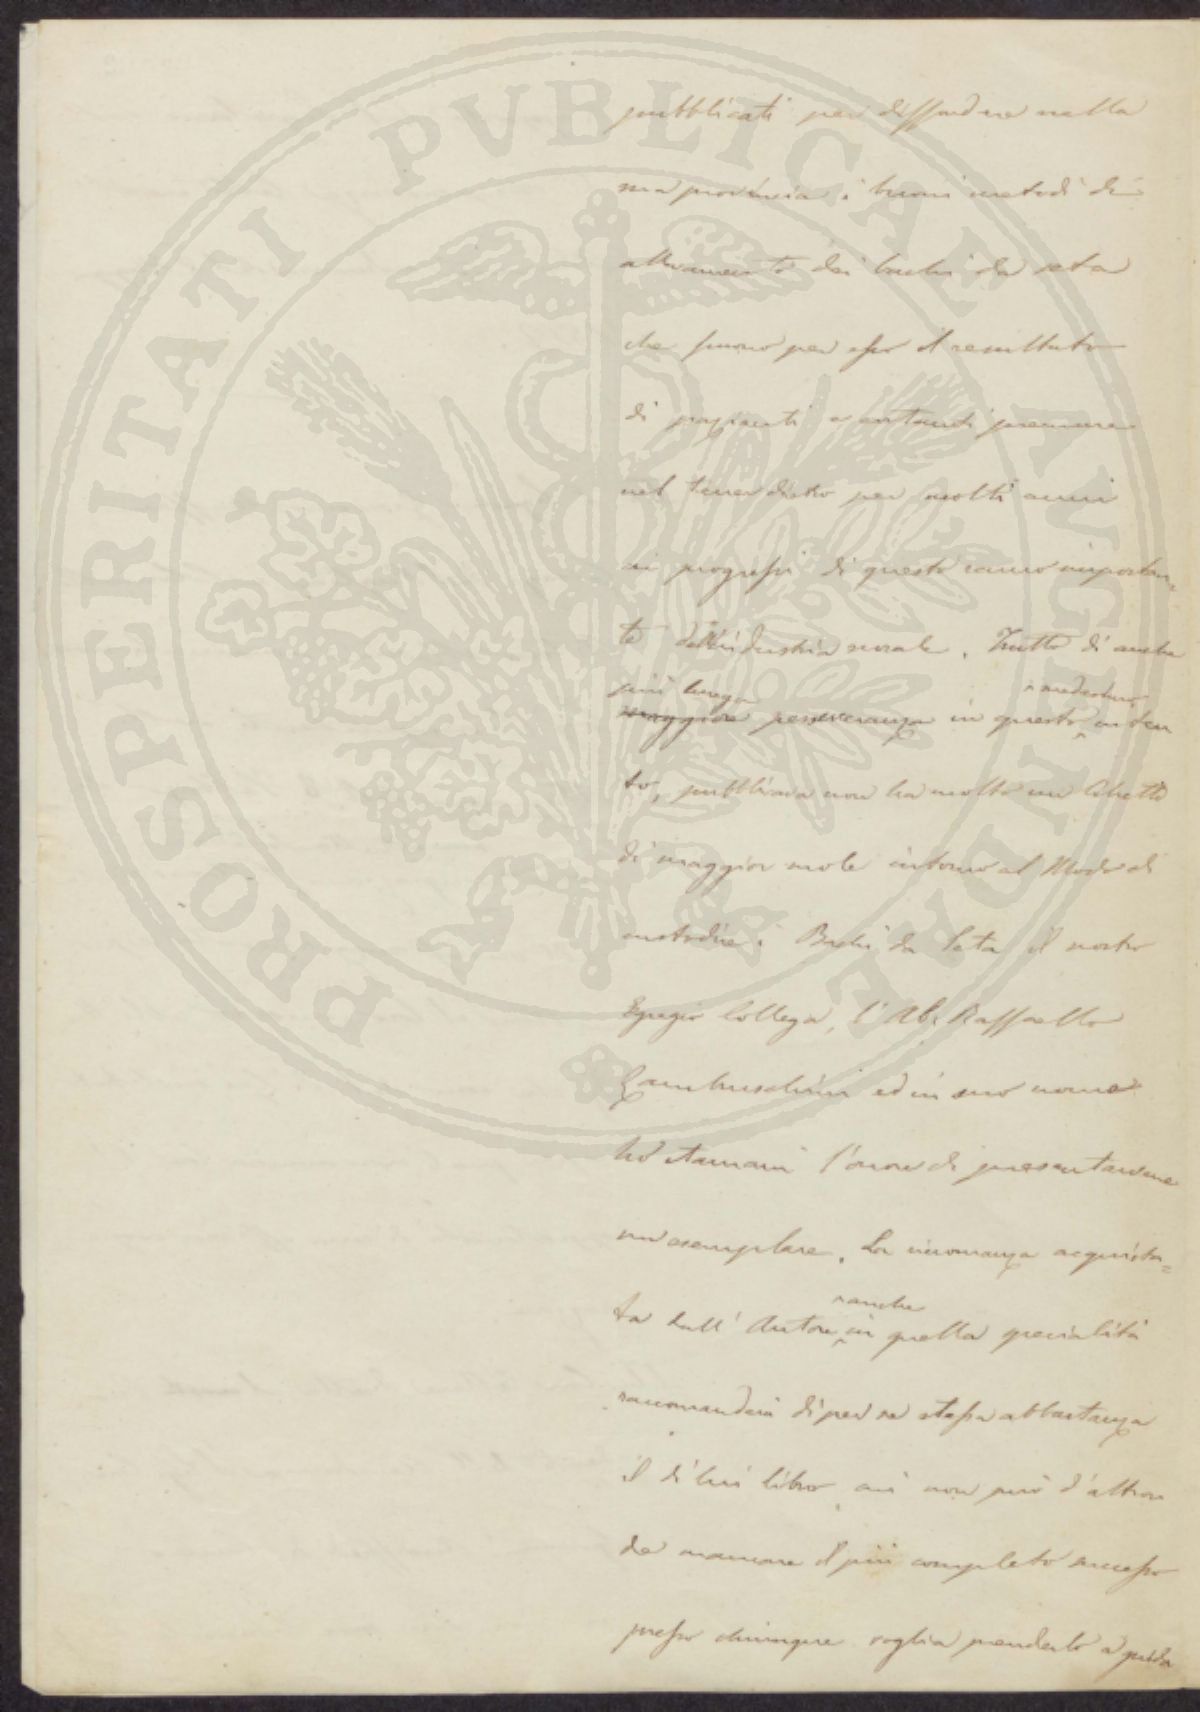 PROSPERITATI PVBLICAE AVGENDAE
pubblicati per diffondere nella
sua provincia i buoni metodi di
allevamento dei bachi da seta
che furono per esso il resultato
di pazienti e costanti premure
nel tener dietro per molti anni
ai progressi di questo ramo importan-
te dell'industria rurale. Frutto di anche
più lunga medesimo
maggiore perseveranza in questo inten
to, pubblicava non ha molto un libretto
di maggior mole intorno al Modo di
custodire i Bachi da Seta il nostro
Egregio Collega, l'Ab. Raffaello
Lambruschini ed in suo nome
ho stamani l'onor di presentarvene
un esemplare. La rinomanza acquista=
anche
ta dall'Autore in quella specialità
raccomanderà di per se stessa abbastanza
il di lui libro cui non può d'altron
de mancare il più completo successo
presso chiunque voglia prenderlo a guida